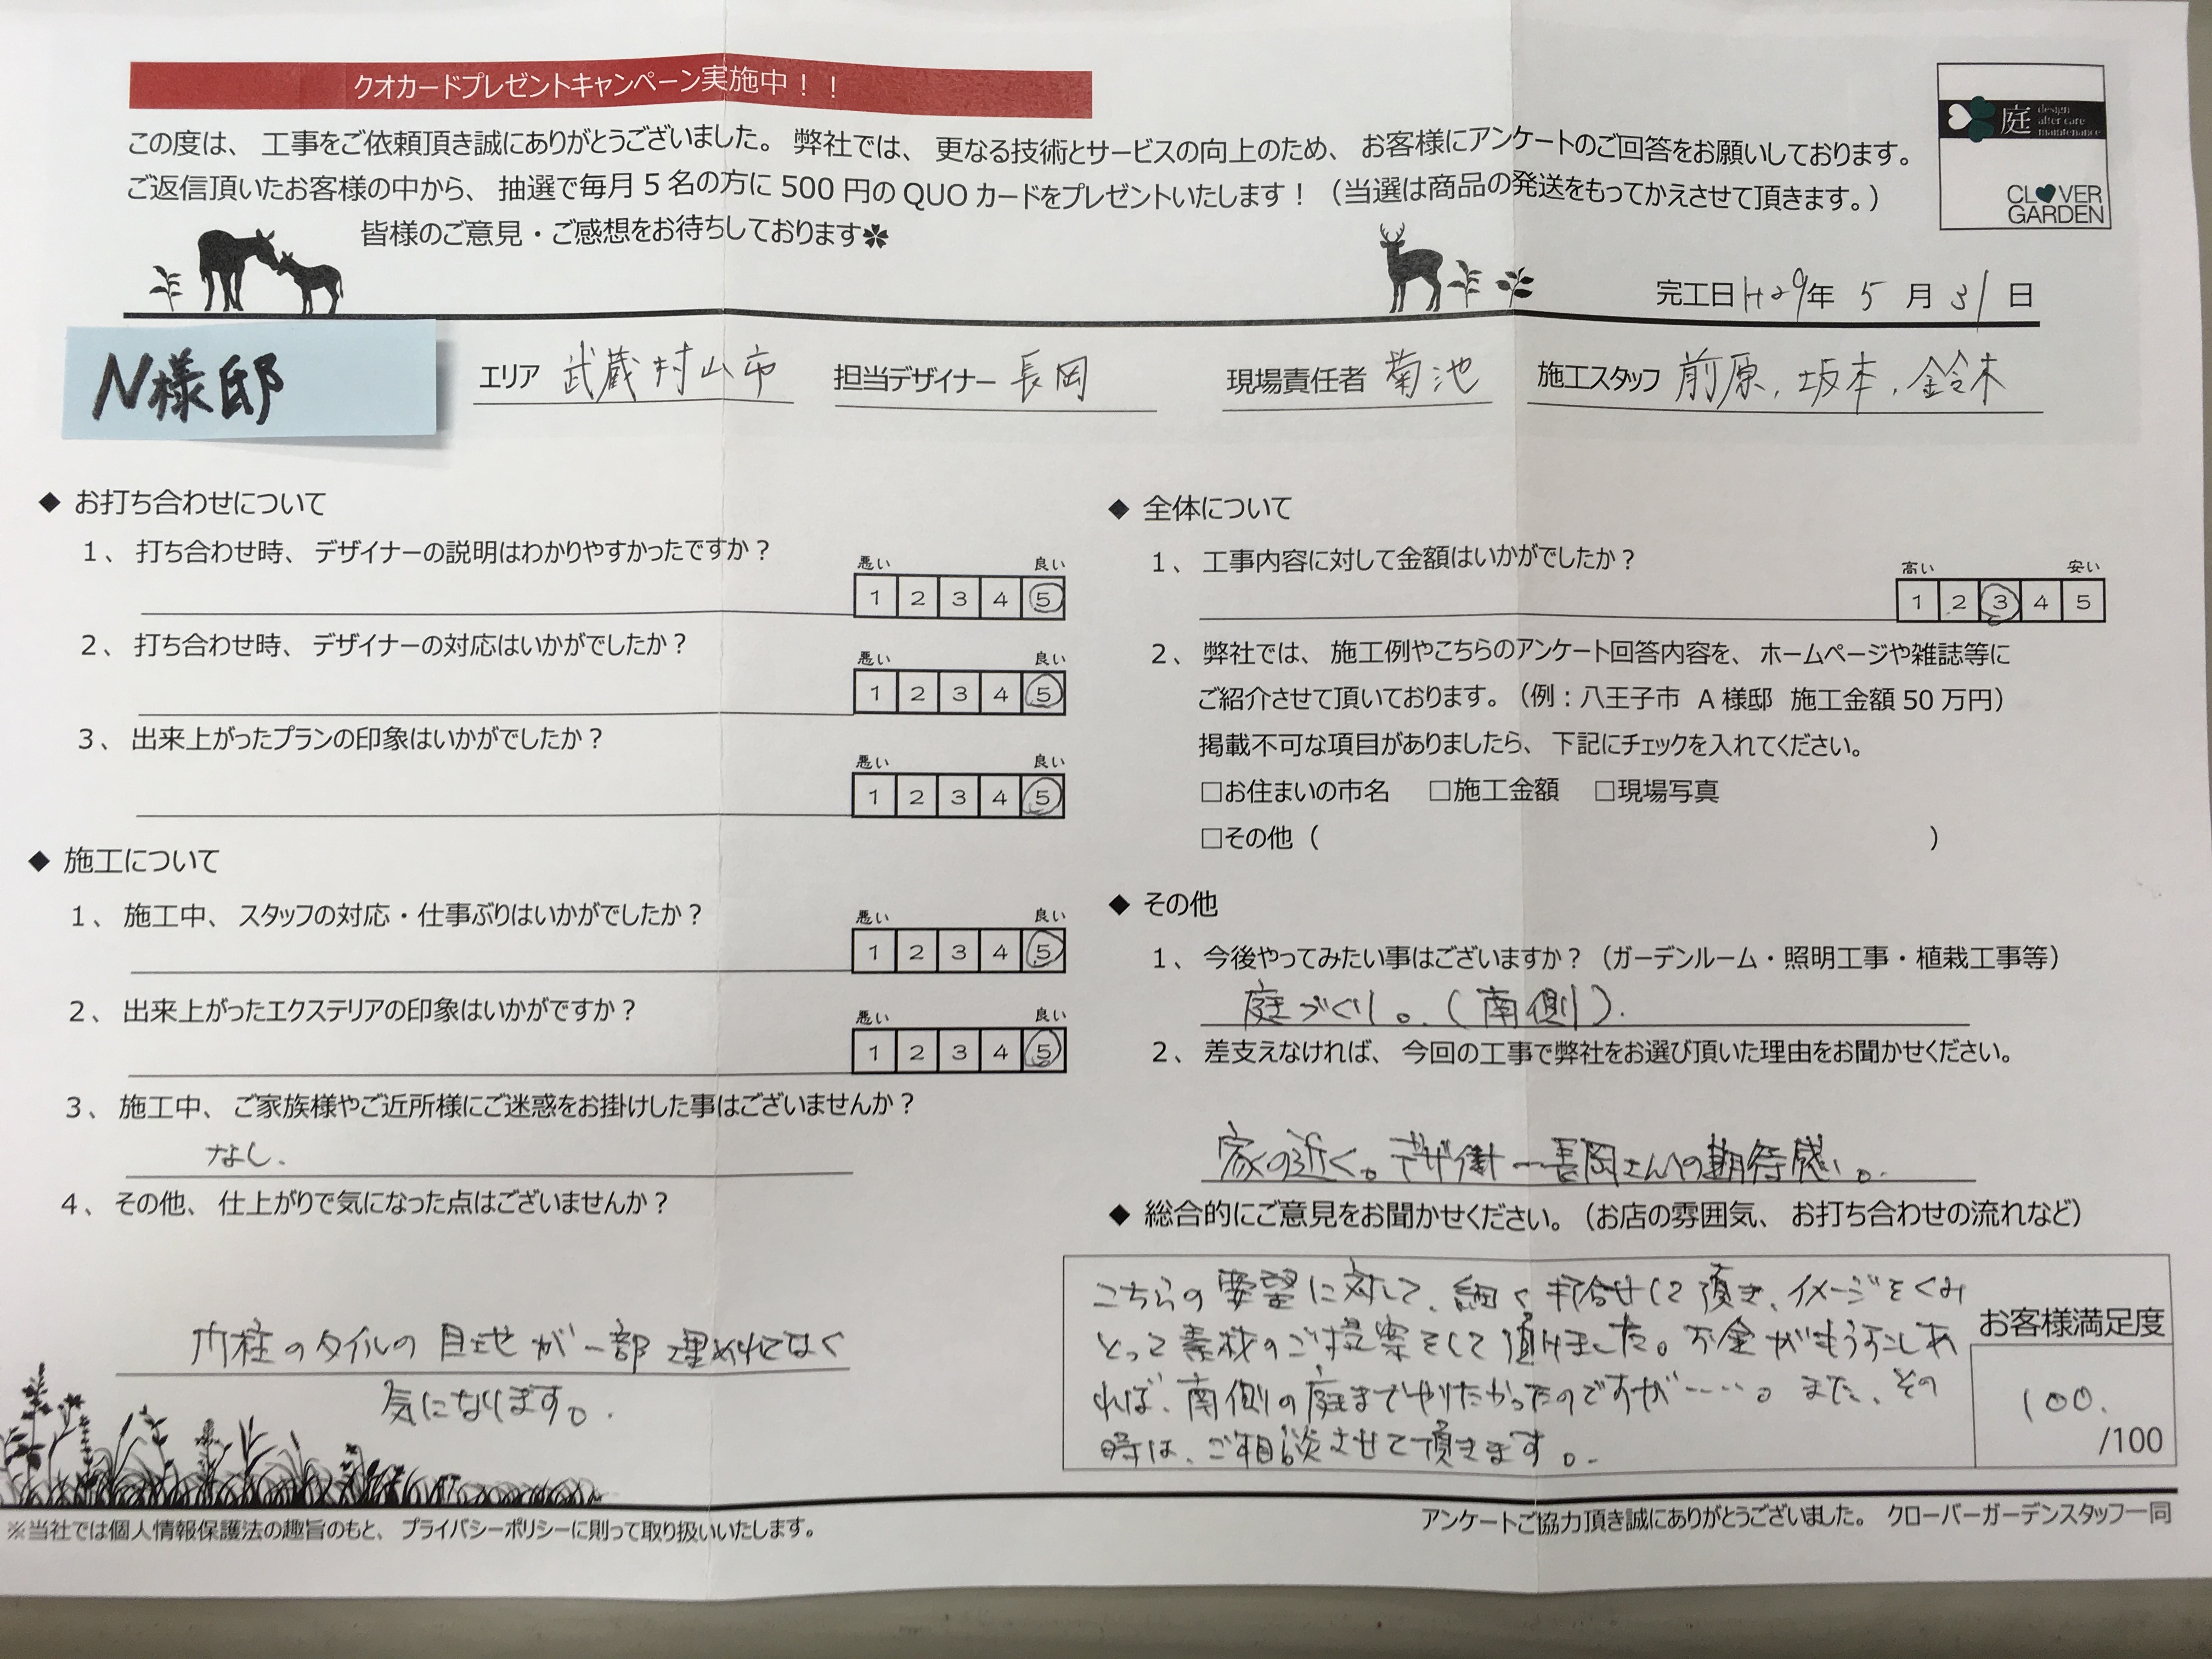 クオカードプレゼントキャンペーン実施中！！
この度は、工事をご依頼頂き誠にありがとうございました。弊社では、更なる技術とサービスの向上のため、お客様にアンケートのご回答をお願いしております。
ご返信頂いたお客様の中から、抽選で毎月５名の方に500円のQUOカードをプレゼントいたします！（当選は商品の発送をもってかえさせて頂きます。）
皆様のご意見・ご感想をお待ちしております
庭 design after care maintenance
CLOVER GARDEN
完工日 H29年 5月 31日
N様邸
エリア 武蔵村山市 担当デザイナー 長岡 現場責任者 菊池 施工スタッフ 前原、坂本、鈴木
◆ お打ち合わせについて
１、打ち合わせ時、デザイナーの説明はわかりやすかったですか？
悪い 良い
1 2 3 4 5
２、打ち合わせ時、デザイナーの対応はいかがでしたか？
悪い 良い
1 2 3 4 5
３、出来上がったプランの印象はいかがでしたか？
悪い 良い
1 2 3 4 5
◆ 施工について
１、施工中、スタッフの対応・仕事ぶりはいかがでしたか？
悪い 良い
1 2 3 4 5
２、出来上がったエクステリアの印象はいかがですか？
悪い 良い
1 2 3 4 5
３、施工中、ご家族様やご近所様にご迷惑をお掛けした事はございませんか？
なし.
４、その他、仕上がりで気になった点はございませんか？
門柱のタイルの目地が一部埋めれてなく
気になります。
◆ 全体について
１、工事内容に対して金額はいかがでしたか？
高い 安い
1 2 3 4 5
２、弊社では、施工例やこちらのアンケート回答内容を、ホームページや雑誌等に
ご紹介させて頂いております。（例：八王子市 A様邸 施工金額50万円）
掲載不可な項目がありましたら、下記にチェックを入れてください。
□お住まいの市名 □施工金額 □現場写真
□その他（ ）
◆ その他
１、今後やってみたい事はございますか？（ガーデンルーム・照明工事・植栽工事等）
庭づくり。(南側).
２、差支えなければ、今回の工事で弊社をお選び頂いた理由をお聞かせください。
家の近く。デザイナー長岡さんへの期待感。
◆ 総合的にご意見をお聞かせください。（お店の雰囲気、お打ち合わせの流れなど）
こちらの要望に対して、細く打合せして頂き、イメージをくみ
とって素材のご提案をして頂けました。お金がもう少しあ
れば、南側の庭までやりたかったのですが……。また、その
時は、ご相談させて頂きます。
お客様満足度
100.
/100
※当社では個人情報保護法の趣旨のもと、プライバシーポリシーに則って取り扱いいたします。
アンケートご協力頂き誠にありがとうございました。 クローバーガーデンスタッフ一同